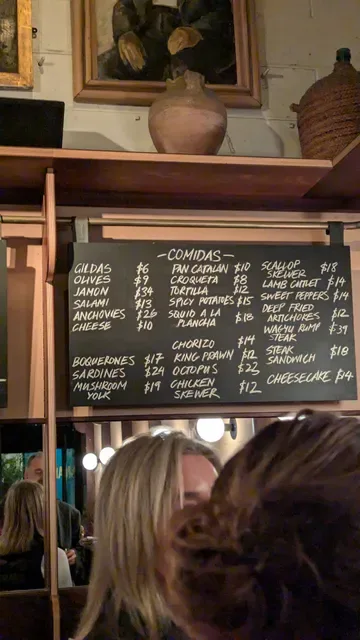 —COMIDAS—
GILDAS $6
OLIVES $9
JAMON $34
SALAMI $13
ANCHOVIES $26
CHEESE $10
BOQUERONES $17
SARDINES $24
MUSHROOM $19
YOLK
PAN CATALAN $10
CROQUETA $8
TORTILLA $12
SPICY POTATOES $15
SQUID A LA $18
PLANCHA
CHORIZO $14
KING PRAWN $12
OCTOPUS $23
CHICKEN
SKEWER $12
SCALLOP $18
SKEWER
LAMB CUTLET $14
SWEET PEPPERS $14
DEEP FRIED
ARTICHOKES $12
WAGYU RUMP $39
STEAK
STEAK $18
SANDWICH
CHEESECAKE $14